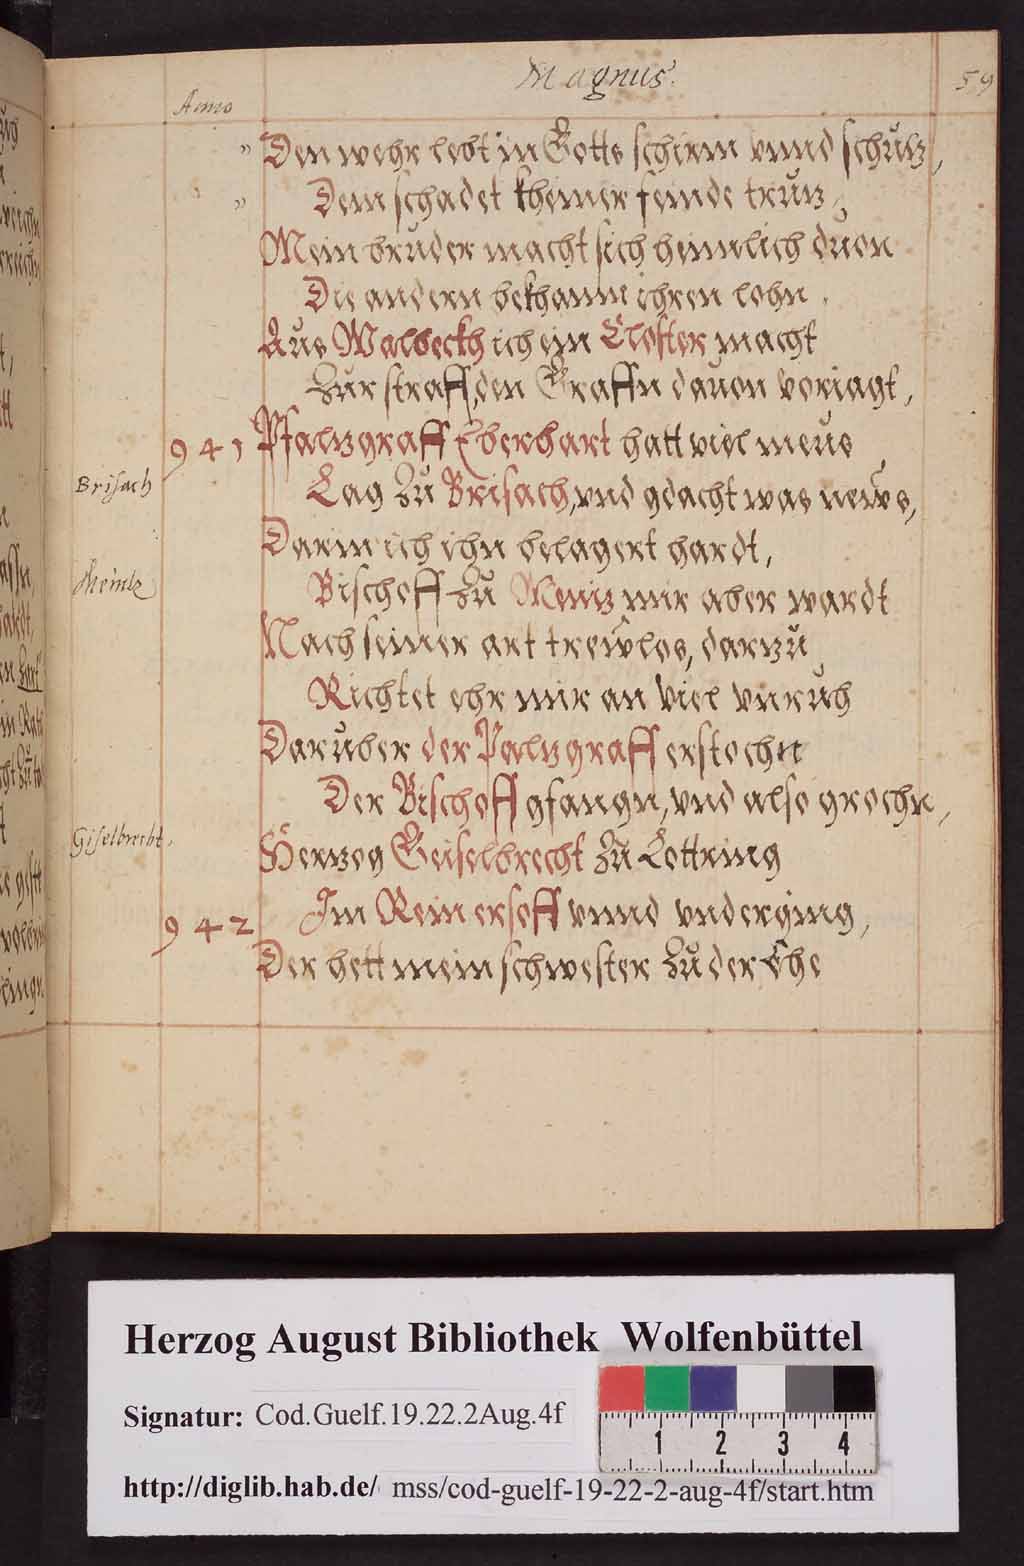 Magnus.
59
Anno
„ Den wehr lebt in Gotts schirm vnnd schuz,
„ Dem schadet kheiner feinde truz,
Mein bruder macht sich heimlich duon
Die andern bekhamm ihren lohn.
Aus Walbeckh ich ein Closter macht
Zur straff, den Graffn dauon veriagt,
941 Pfalzgraff Eberhart hatt viel meus
Brisach
Lag zu Brisach, vnd gdacht was news,
Darin ich ihn belagert hardt,
Meintz
Bischoff zu Meniz mir aber wardt
Nach seiner art trewlos, darzu
Richtet ehr mir an viel vnruh
Daruber der Palzgraff erstochn
Der Bischoff gfangn, vnd also grochn,
Giselbrecht.
Herzog Geiselbrecht zu Lottring
942 Im Rein ersoff vnnd vnderging,
Der hett mein schwester zu der Ehe
Herzog August Bibliothek Wolfenbüttel
Signatur: Cod.Guelf.19.22.2Aug.4f
1 2 3 4
http://diglib.hab.de/ mss/cod-guelf-19-22-2-aug-4f/start.htm